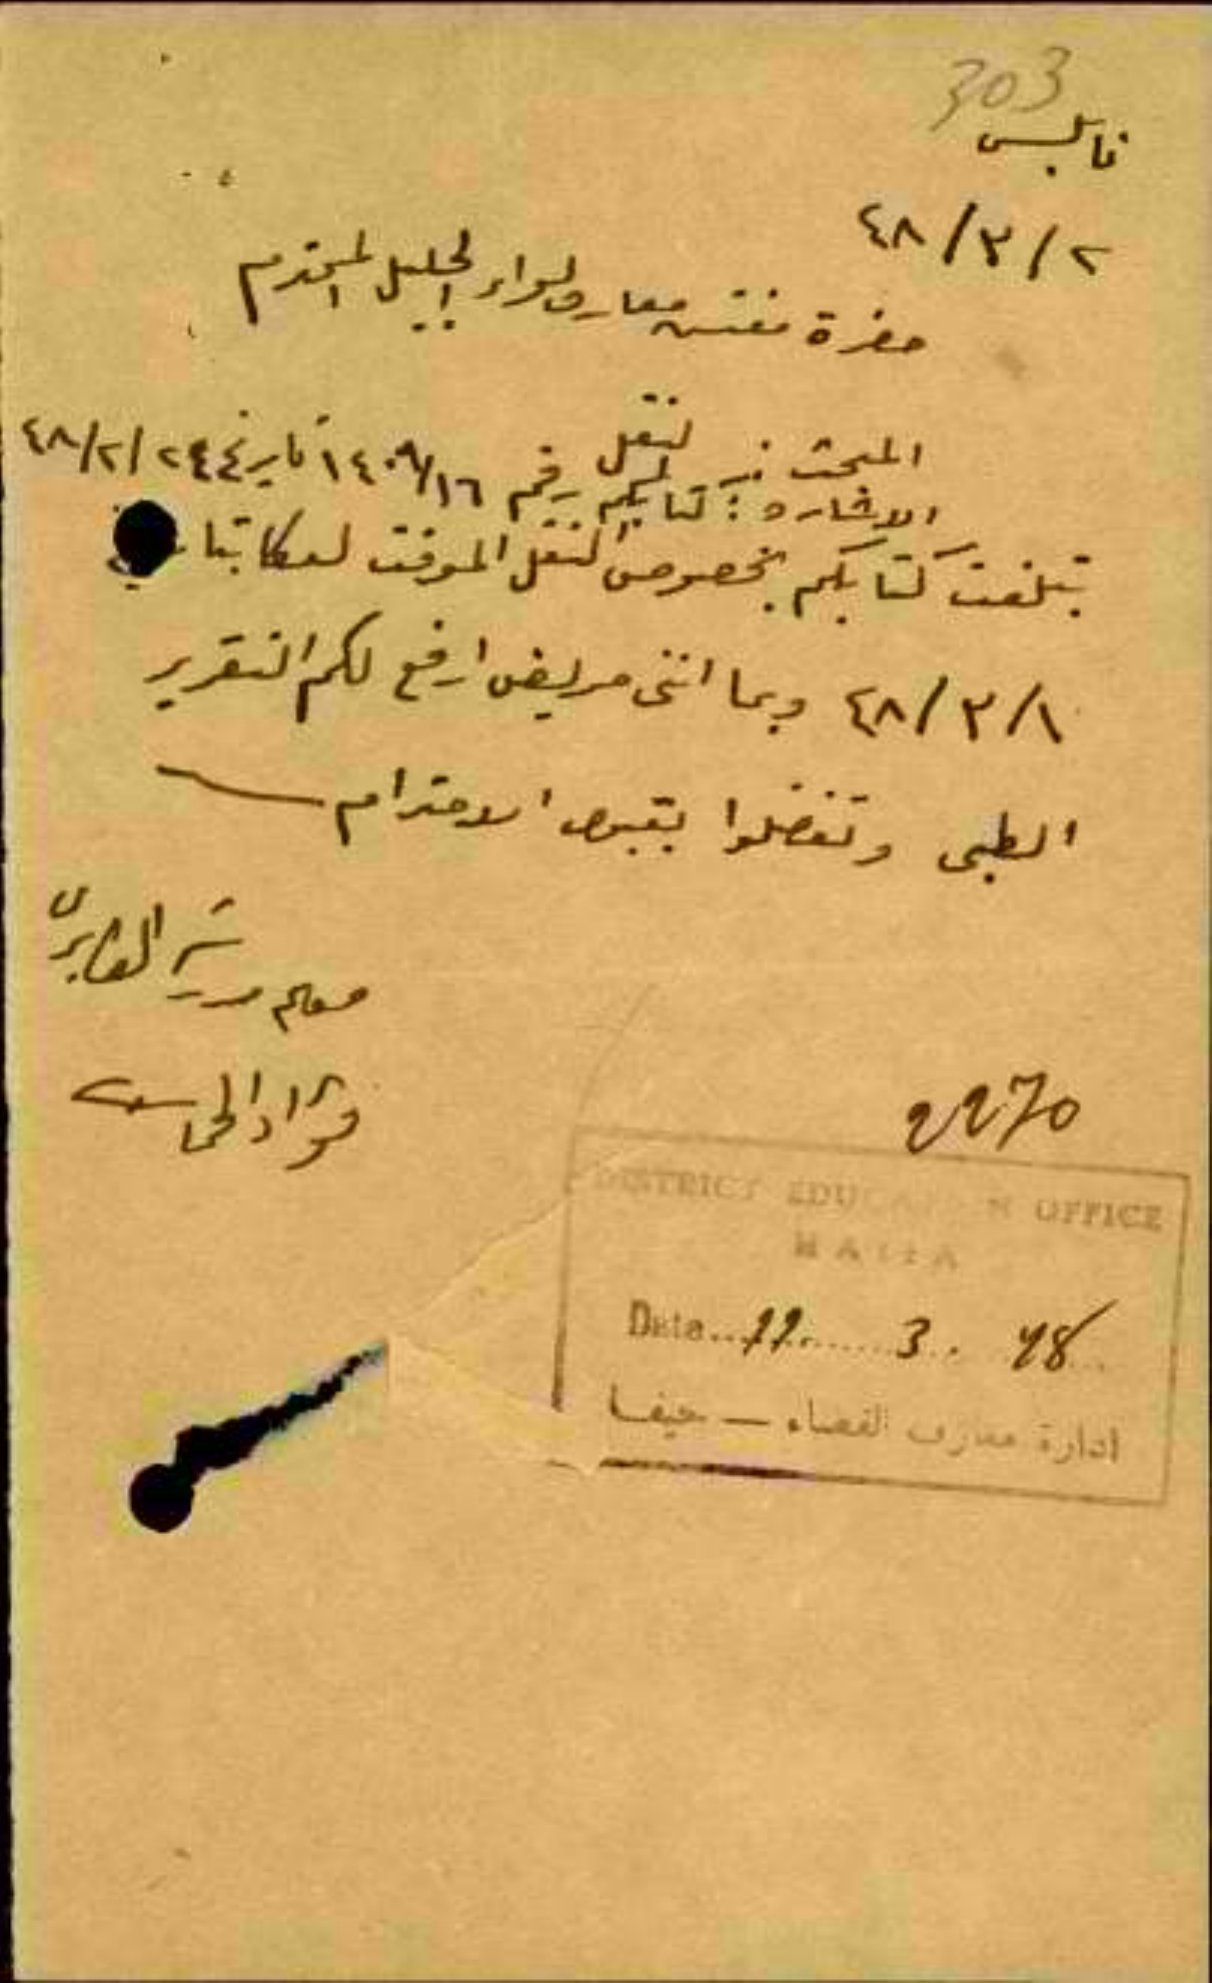 303
نابلس
٢/٣/٤٨
حضرة مفتش معارف لواء الجليل المحترم
المبحث : لنقل
الاشارة : كتابكم رقم ١٤٠٩/١٦ تاريخ ٢٤/٢/٤٨
تبلغت كتابكم بخصوص النقل الموقت لعكا بتاريخ
١/٣/٤٨ وبما انني مريض ارفع لكم التقرير
الطبي وتفضلوا بقبول الاحترام
معلم مدرسة
فؤاد
2270
DISTRICT EDUCATION OFFICE
HAIFA
Date 11 3 48
ادارة معارف القضاء — حيفا